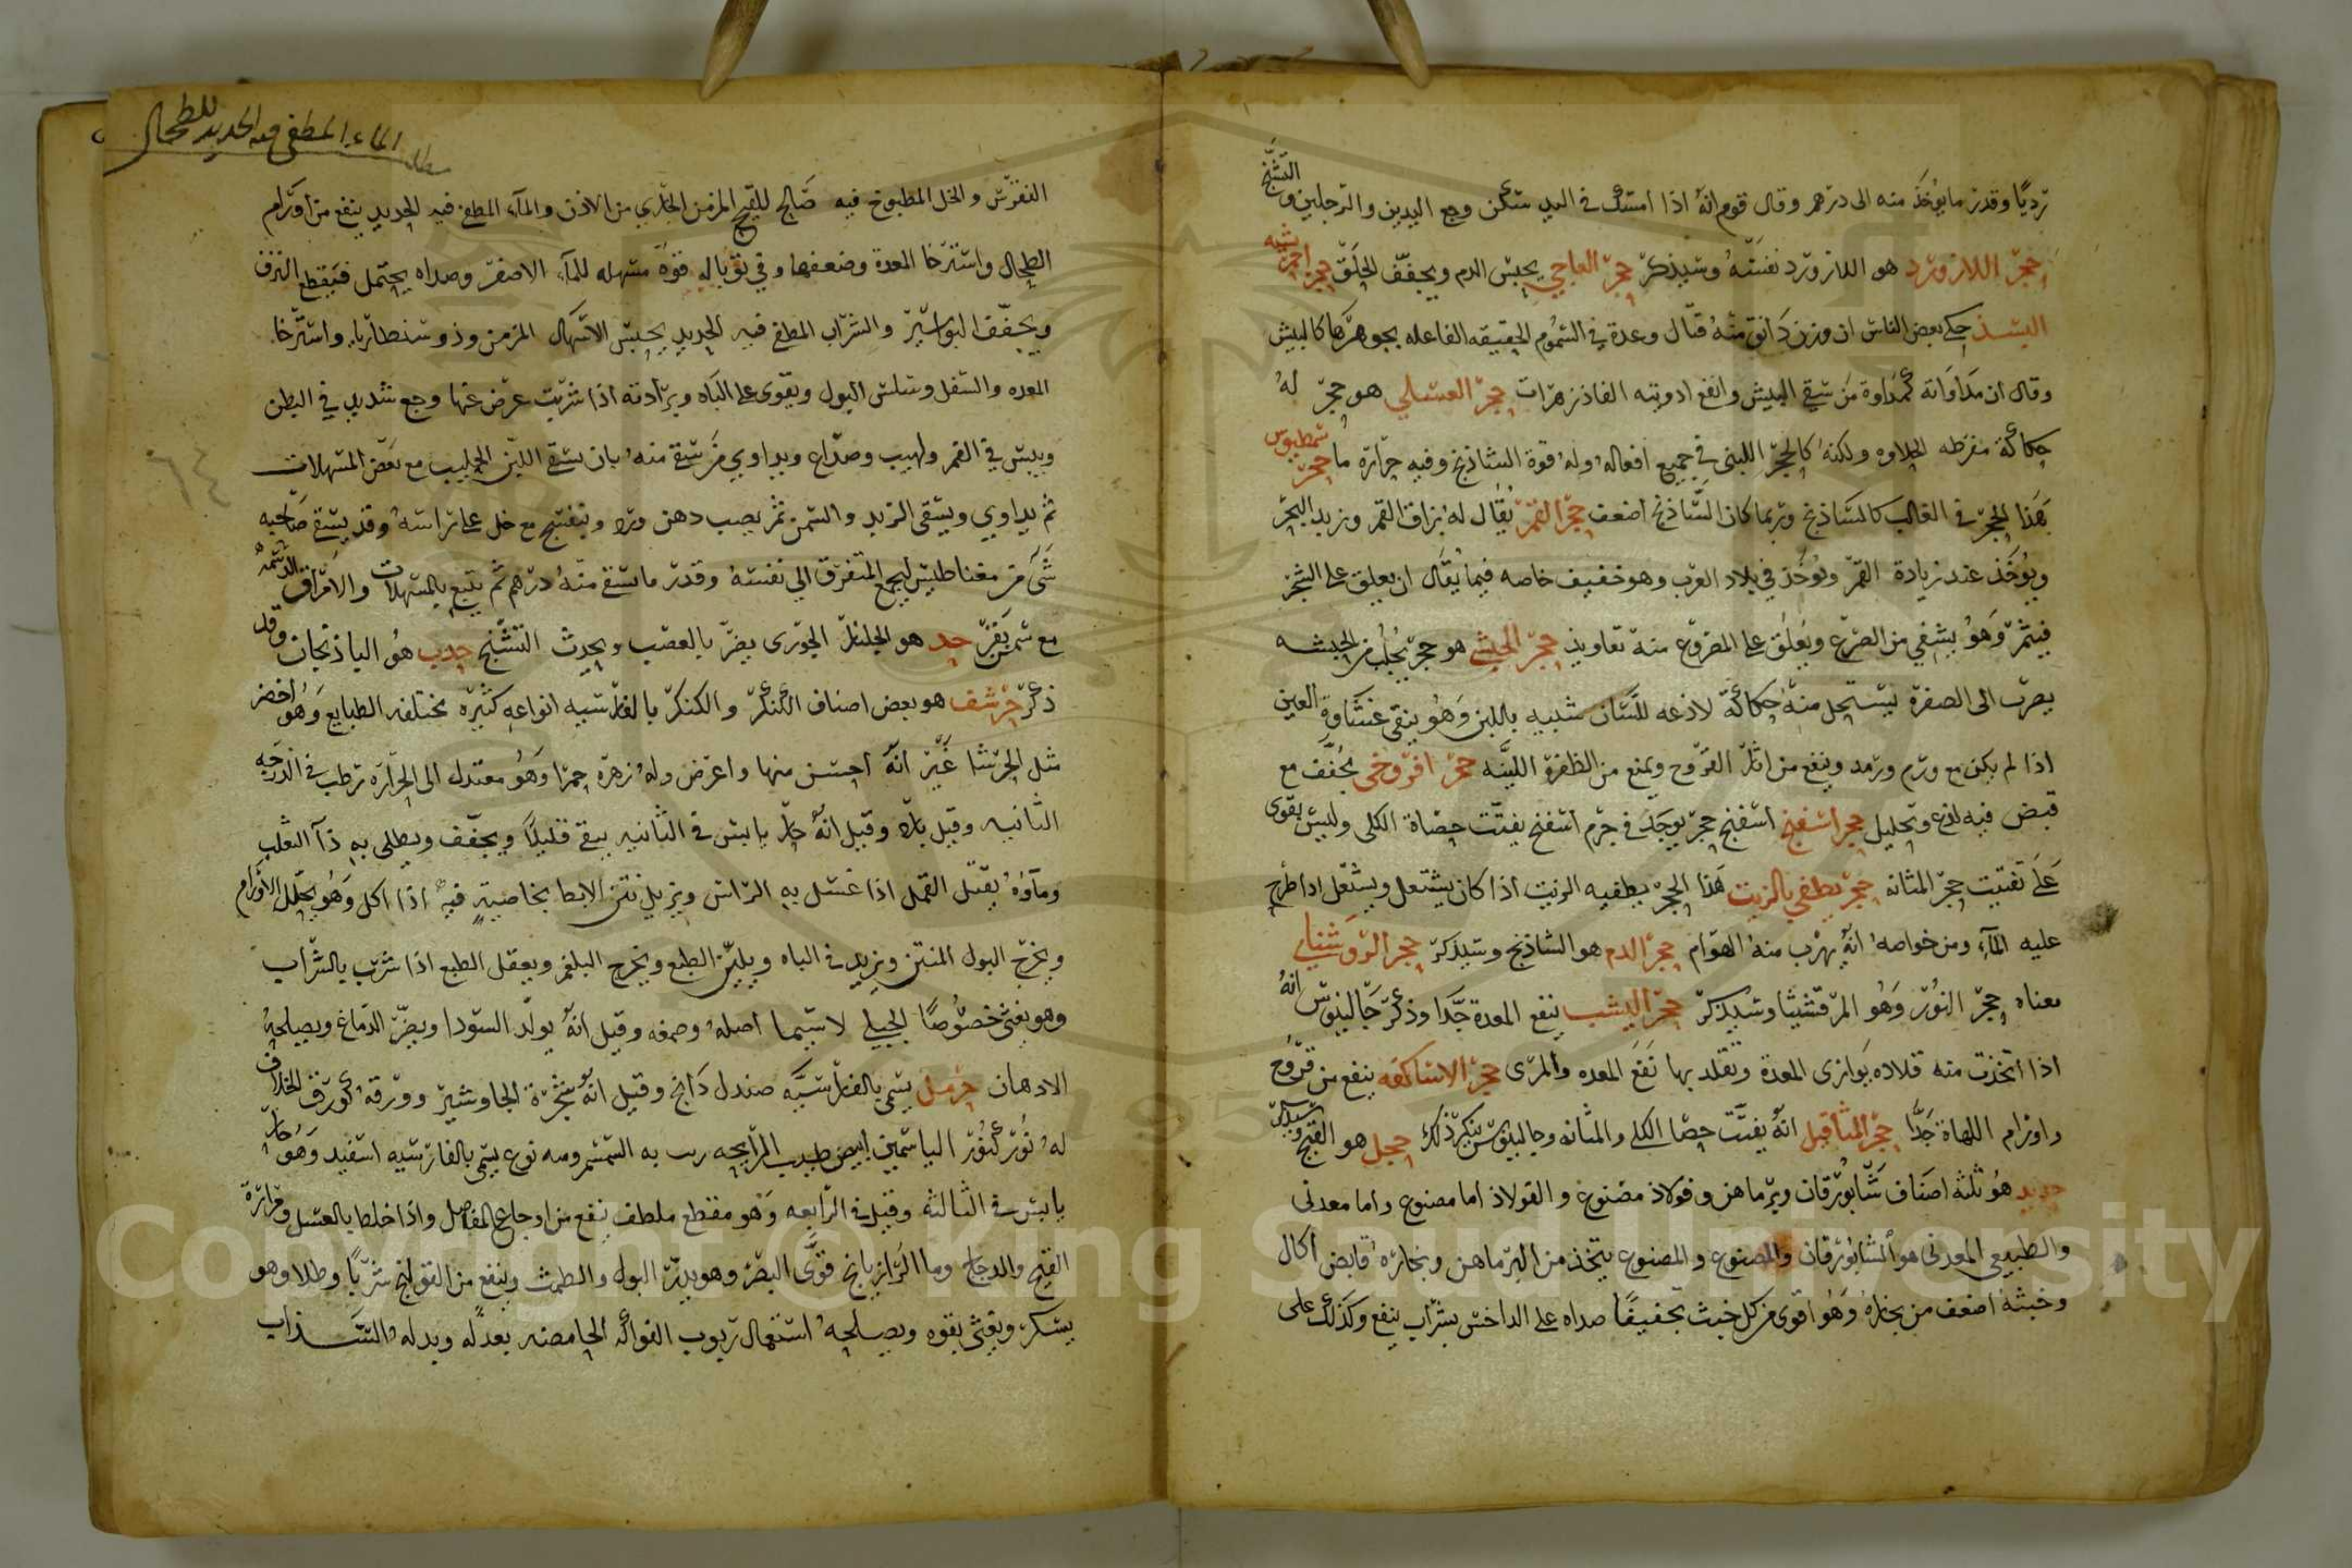 ترديًا وقدر ما يؤخذ منه الى درهم وقال قوم انه اذا امسك في اليد سكن وجع اليدين والرجلين والتشنج
حجر اللازورد هو اللازورد نفسه وسيذكر حجر العاجي يحبس الدم ويجفف الحلق حجر احمر يشبه
البسد حكى بعض الناس ان وزن دانق منه قتال وعده في السموم الحقيقه الفاعله بجوهرها كالبيش
وقال ان مداواته كمداوة من سقي البيش وانفع ادويته الفاذزهرات حجر العسلي هو حجر له
حكاكة مفرطه الحلاوه ولكنه كالحجر اللبني في جميع افعاله وله قوة الشاذنج وفيه حرارة ما حجر شمطيوس
هذا الحجر في الغالب كالشاذنج وربما كان الشاذنج اضعف حجر القمر يقال له بزاق القمر وزبد البحر
ويؤخذ عند زيادة القمر ويؤخذ في بلاد العرب وهو خفيف خاصه فيما يقال ان يعلق على الشجر
فيثمر وهو يشفي من الصرع ويعلق على المصروع منه تعاويذ حجر الحبشي هو حجر يجلب من الحبشه
يضرب الى الصفرة يستحل منه حكاكة لاذعه للسان شبيه باللبن وهو ينقي غشاوة العين
اذا لم يكن مع ورم ورمد وينفع من اثار القروح ويمنع من الظفرة اللينه حجر افروخي يجفف مع
قبض فيه لذع وتحليل حجر اسفنج اسفنج حجر يوجد في جرم اسفنج يفتت حصاة الكلى وليس يقوى
على تفتيت حجر المثانه حجر يطفي بالزيت هذا الحجر يطفيه الزيت اذا كان يشتعل ويشتعل اذا طرح
عليه الماء ومن خواصه انه يهرب منه الهوام حجر الدم هو الشاذنج وسيذكر حجر الروشنايي
معناه حجر النور وهو المرقشيثا وسيذكر حجر اليشب ينفع المعدة جدا وذكر جالينوس انه
اذا اتخذت منه قلاده يوازى المعدة وتقلد بها نفع المعده والمرى حجر الاساكفه ينفع من قروح
واورام اللهاة جدا حجر المثاقيل انه يفتت حصا الكلى والمثانه وجالينوس ينكر ذلك حجل هو القبج وسيذكر
حديد هو ثلثة اصناف شابورقان وبرماهن وفولاذ مصنوع والفولاذ اما مصنوع واما معدني
والطبيعي المعدني هو الشابورقان والمصنوع والمصنوع يتخذ من البرماهن وبخاره قابض اكال
وخبثه اضعف من بخاره وهو اقوى من كل خبث تجفيفا صداه على الداحس بشراب ينفع وكذلك على
الماء المطفي فيه الحديد للطحال
مطلب
النقرس والخل المطبوخ فيه صالح للقيح المزمن الجاري من الاذن والماء المطفي فيه الحديد ينفع من اورام
الطحال واسترخا المعدة وضعفها وفي توباله قوة مسهله للماء الاصفر وصداه يحتمل فيقطع النزف
ويجفف البواسير والشراب المطفي فيه الحديد يحبس الاسهال المزمن وذوسنطاريا واسترخا
المعده والسفل وسلس البول ويقوى على الباه وبرادته اذا شربت عرض عنها وجع شديد في البطن
ويبس في الفم ولهيب وصداع ويداوي من سقي منه بان يسقي اللبن الحليب مع بعض المسهلات
ثم يداوي ويسقى الزبد والسمن ثم يصب دهن ورد وبنفسج مع خل على راسه وقد يسقي صاحبه
شي من مغناطيس ليجمع المتفرق الى نفسه وقدر ما يسقي منه درهم ثم يتبع بالمسهلات والامراق الدسمه
مع سمن بقر حد هو الجلنار الجوري يضر بالعصب ويحدث التشنج حدب هو الباذنجان وقد
ذكر حرشف هو بعض اصناف الكنكر والكنكر بالفارسيه انواعه كثيره مختلفه الطبايع وهو اخضر
مثل الحرشا غير انه احسن منها واعرض وله زهره حمرا وهو معتدل الى الحراره رطب في الدرجه
الثانيه وقيل بارد وقيل انه حار يابس في الثانيه يبقي قليلا ويجفف ويطلى به دآ الثعلب
وماؤه يقتل القمل اذا غسل به الراس ويزيل نتن الابط بخاصية فيه اذا اكل وهو يحلل الاورام
ويخرج البول المنتن ويزيد في الباه ويلين الطبع ويخرج البلغم ويعقل الطبع اذا شرب بالشراب
وهو يغثي خصوصا الجبلي لا سيما اصله وصمغه وقيل انه يولد السودا ويضر الدماغ ويصلحه
الادهان حرمل يسمى بالفارسيه صندل دانج وقيل انه شجرة الجاوشير وورقه كورق الخلاف
له نور كنور الياسمين ابيض طيب الرايحه ربب به السمسم ومنه نوع يسمى بالفارسيه اسفند وهو حار
يابس في الثالثه وقيل في الرابعه وهو مقطع ملطف ينفع من اوجاع المفاصل واذا خلط بالعسل ومرارة
القبج والدجاج وماء الرازيانج قوى البصر وهو يدر البول والطمث وينفع من القولنج شربا وطلا وهو
يسكر ويغثي بقوه ويصلحه استعمال ربوب الفواكه الحامضه بعد له وبدله السذاب